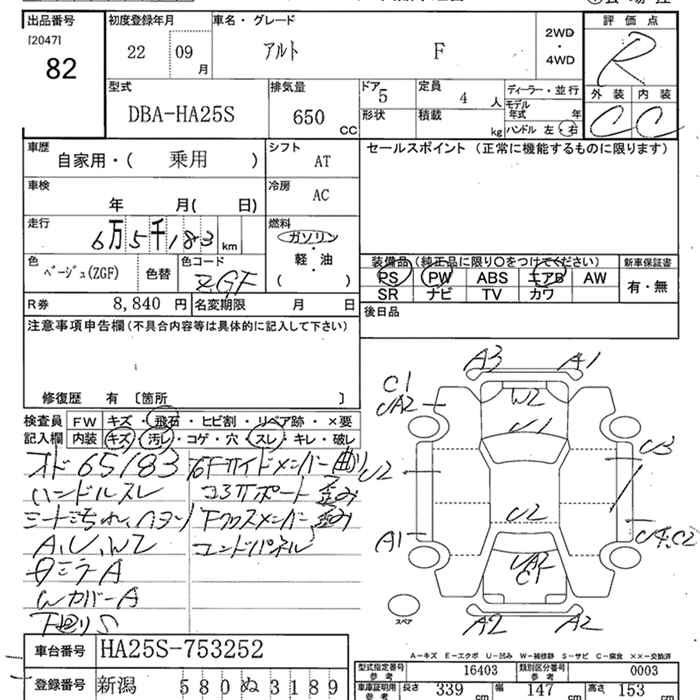 出品番号 初度登録年月 車名・グレード 2WD・4WD 評価点
[2047]
82 22 09月 アルト F R
型式 排気量 ドア 5 定員 4人 ディーラー・並行 外装 内装
DBA-HA25S 650 CC 形状 積載 kg モデル年式 年 C C
ハンドル 左・右
車歴 シフト セールスポイント (正常に機能するものに限ります)
自家用・( 乗用 ) AT
車検 冷房
年 月( 日) AC
走行 燃料
6万5千183km ガソリン
軽・油
( )
色 色替 色コード 装備品(純正品に限り○をつけてください) 新車保証書
ベージュ(ZGF) ZGF PS PW ABS エアB AW 有・無
SR ナビ TV カワ
R券 8,840 円 名変期限 月 日 後日品
注意事項申告欄(不具合内容等は具体的に記入して下さい)
修復歴 有 [箇所 ]
検査員 FW キズ・飛石・ヒビ割・リペア跡・×要
記入欄 内装 キズ・汚レ・コゲ・穴・スレ・キレ・破レ
オド65183 右Fサイドメンバー曲り
ハンドルスレ コアサポート歪み
シート汚れ、 Fクロスメンバー歪み
A,U,W2 エンドパネル
A
WカバーA
下廻りS
A3 A1
C1
UA2 W2
U1
U2 U3
U2
A1 C2
C1
スペア
A2 A2
A-キズ E-エクボ U-凹み W-補修跡 S-サビ C-腐食 ××-交換済
車台番号 HA25S-753252
型式指定番号 参考 16403 類別区分番号 参考 0003
登録番号 新潟 580 ぬ 3189
車庫証明用 参考 長さ 339cm 幅 147cm 高さ 153cm